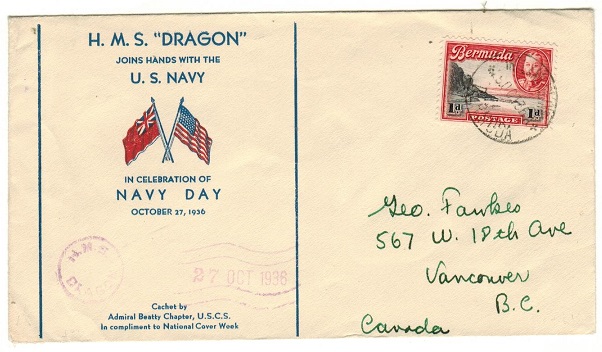 H. M. S. "DRAGON"
JOINS HANDS WITH THE
U. S. NAVY
IN CELEBRATION OF
NAVY DAY
OCTOBER 27, 1936
H.M.S.
27 OCT 1936
Cachet by
Admiral Beatty Chapter, U.S.C.S.
In compliment to National Cover Week
Bermuda
1d 1d
POSTAGE
Geo. Fawkes
567 W. 18th Ave
Vancouver
B.C.
Canada